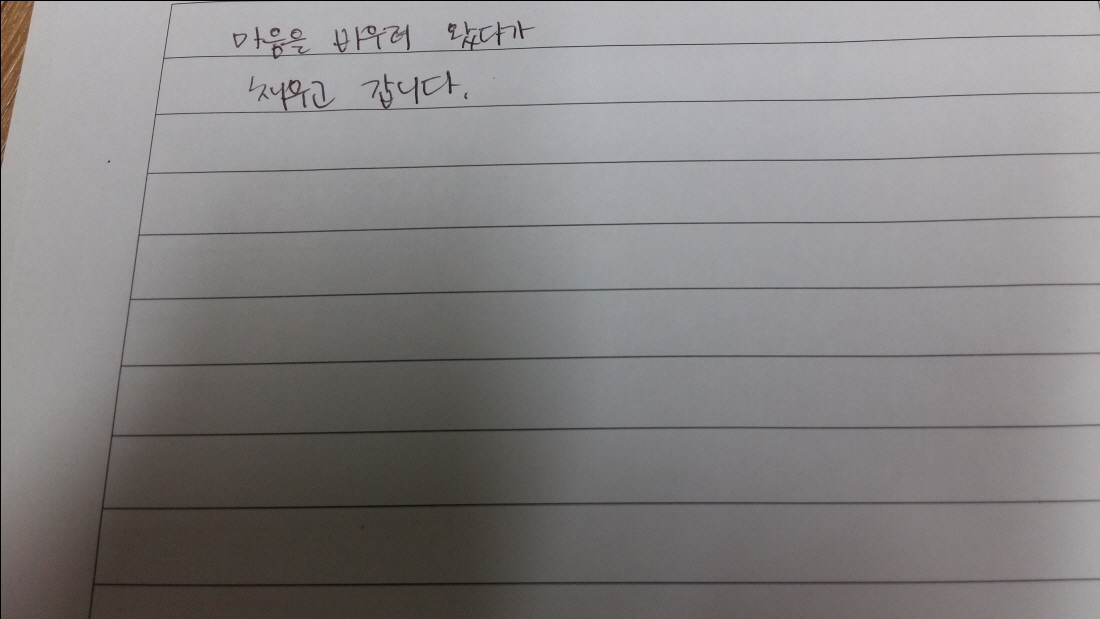 마음을 비우러 왔다가
채우고 갑니다.